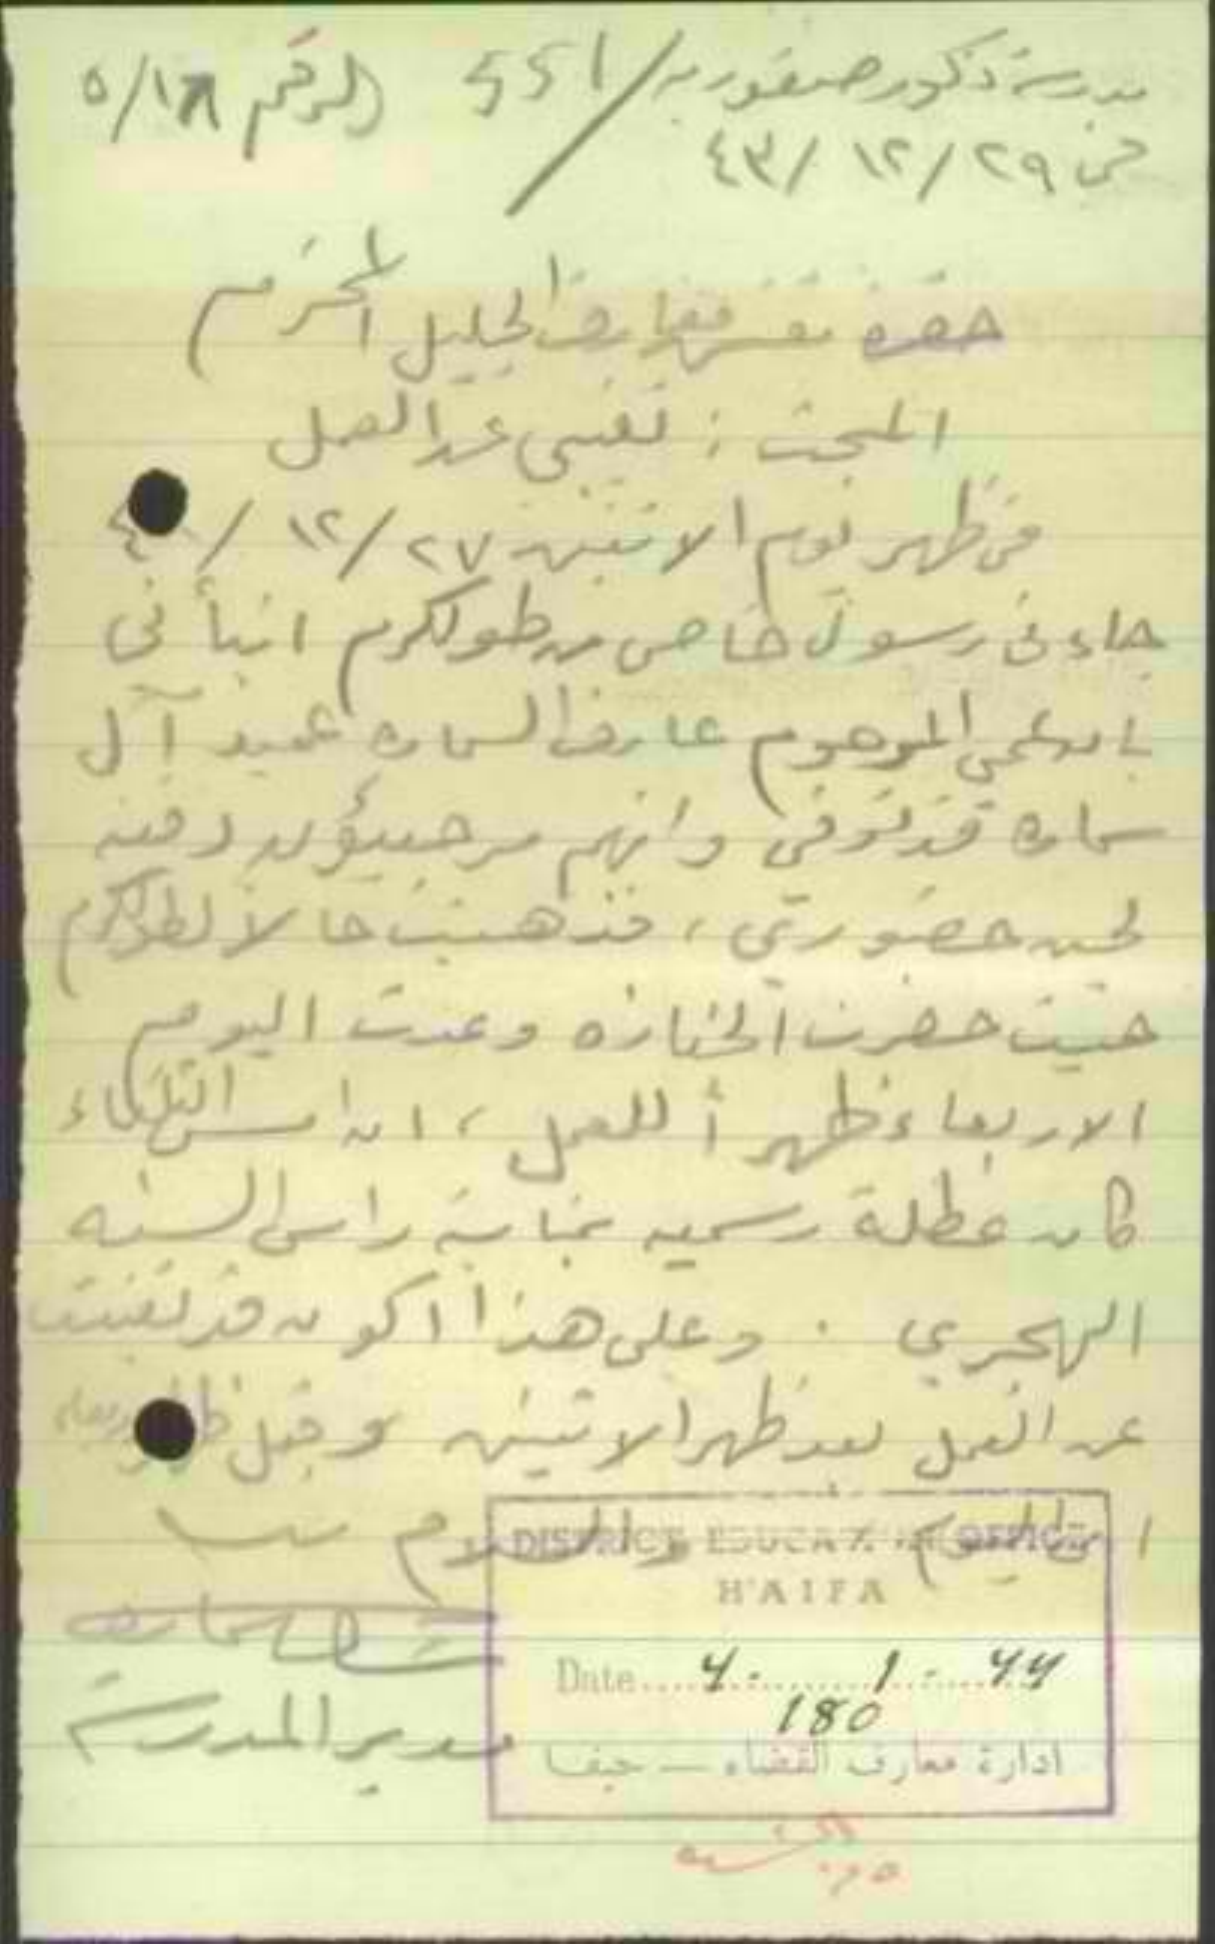 مدرسة ذكور صفورية / 551 الرقم ٥/١٨
في ٢٩/ ١٢/ ٤٣
حضرة مفتش معارف الجليل المحترم
المبحث : تغيبي عن العمل
في ظهر يوم الاثنين ٢٧/ ١٢/
جاءني رسول خاص من طولكرم انبأني
بان عمي المرحوم عارف السماره عميد آل
سماره قد توفي وانهم مرجيؤن دفنه
لحين حضوري ، فذهبت حالا لطولكرم
حيث حضرت الجنازه وعدت اليوم
الاربعاء ظهرأ للعمل ، ان امس الثلاثاء
كان عطلة رسميه بمناسبة راس السنه
الهجري . وعلى هذا اكون قد تغيبت
عن العمل بعد ظهر الاثنين وقبل ظهر
اليوم والسلام
سماره
مدير المدرسة
DISTRICT EDUCATION OFFICE
HAIFA
Date 4 - 1 - 44
180
ادارة معارف القضاء — حيفا